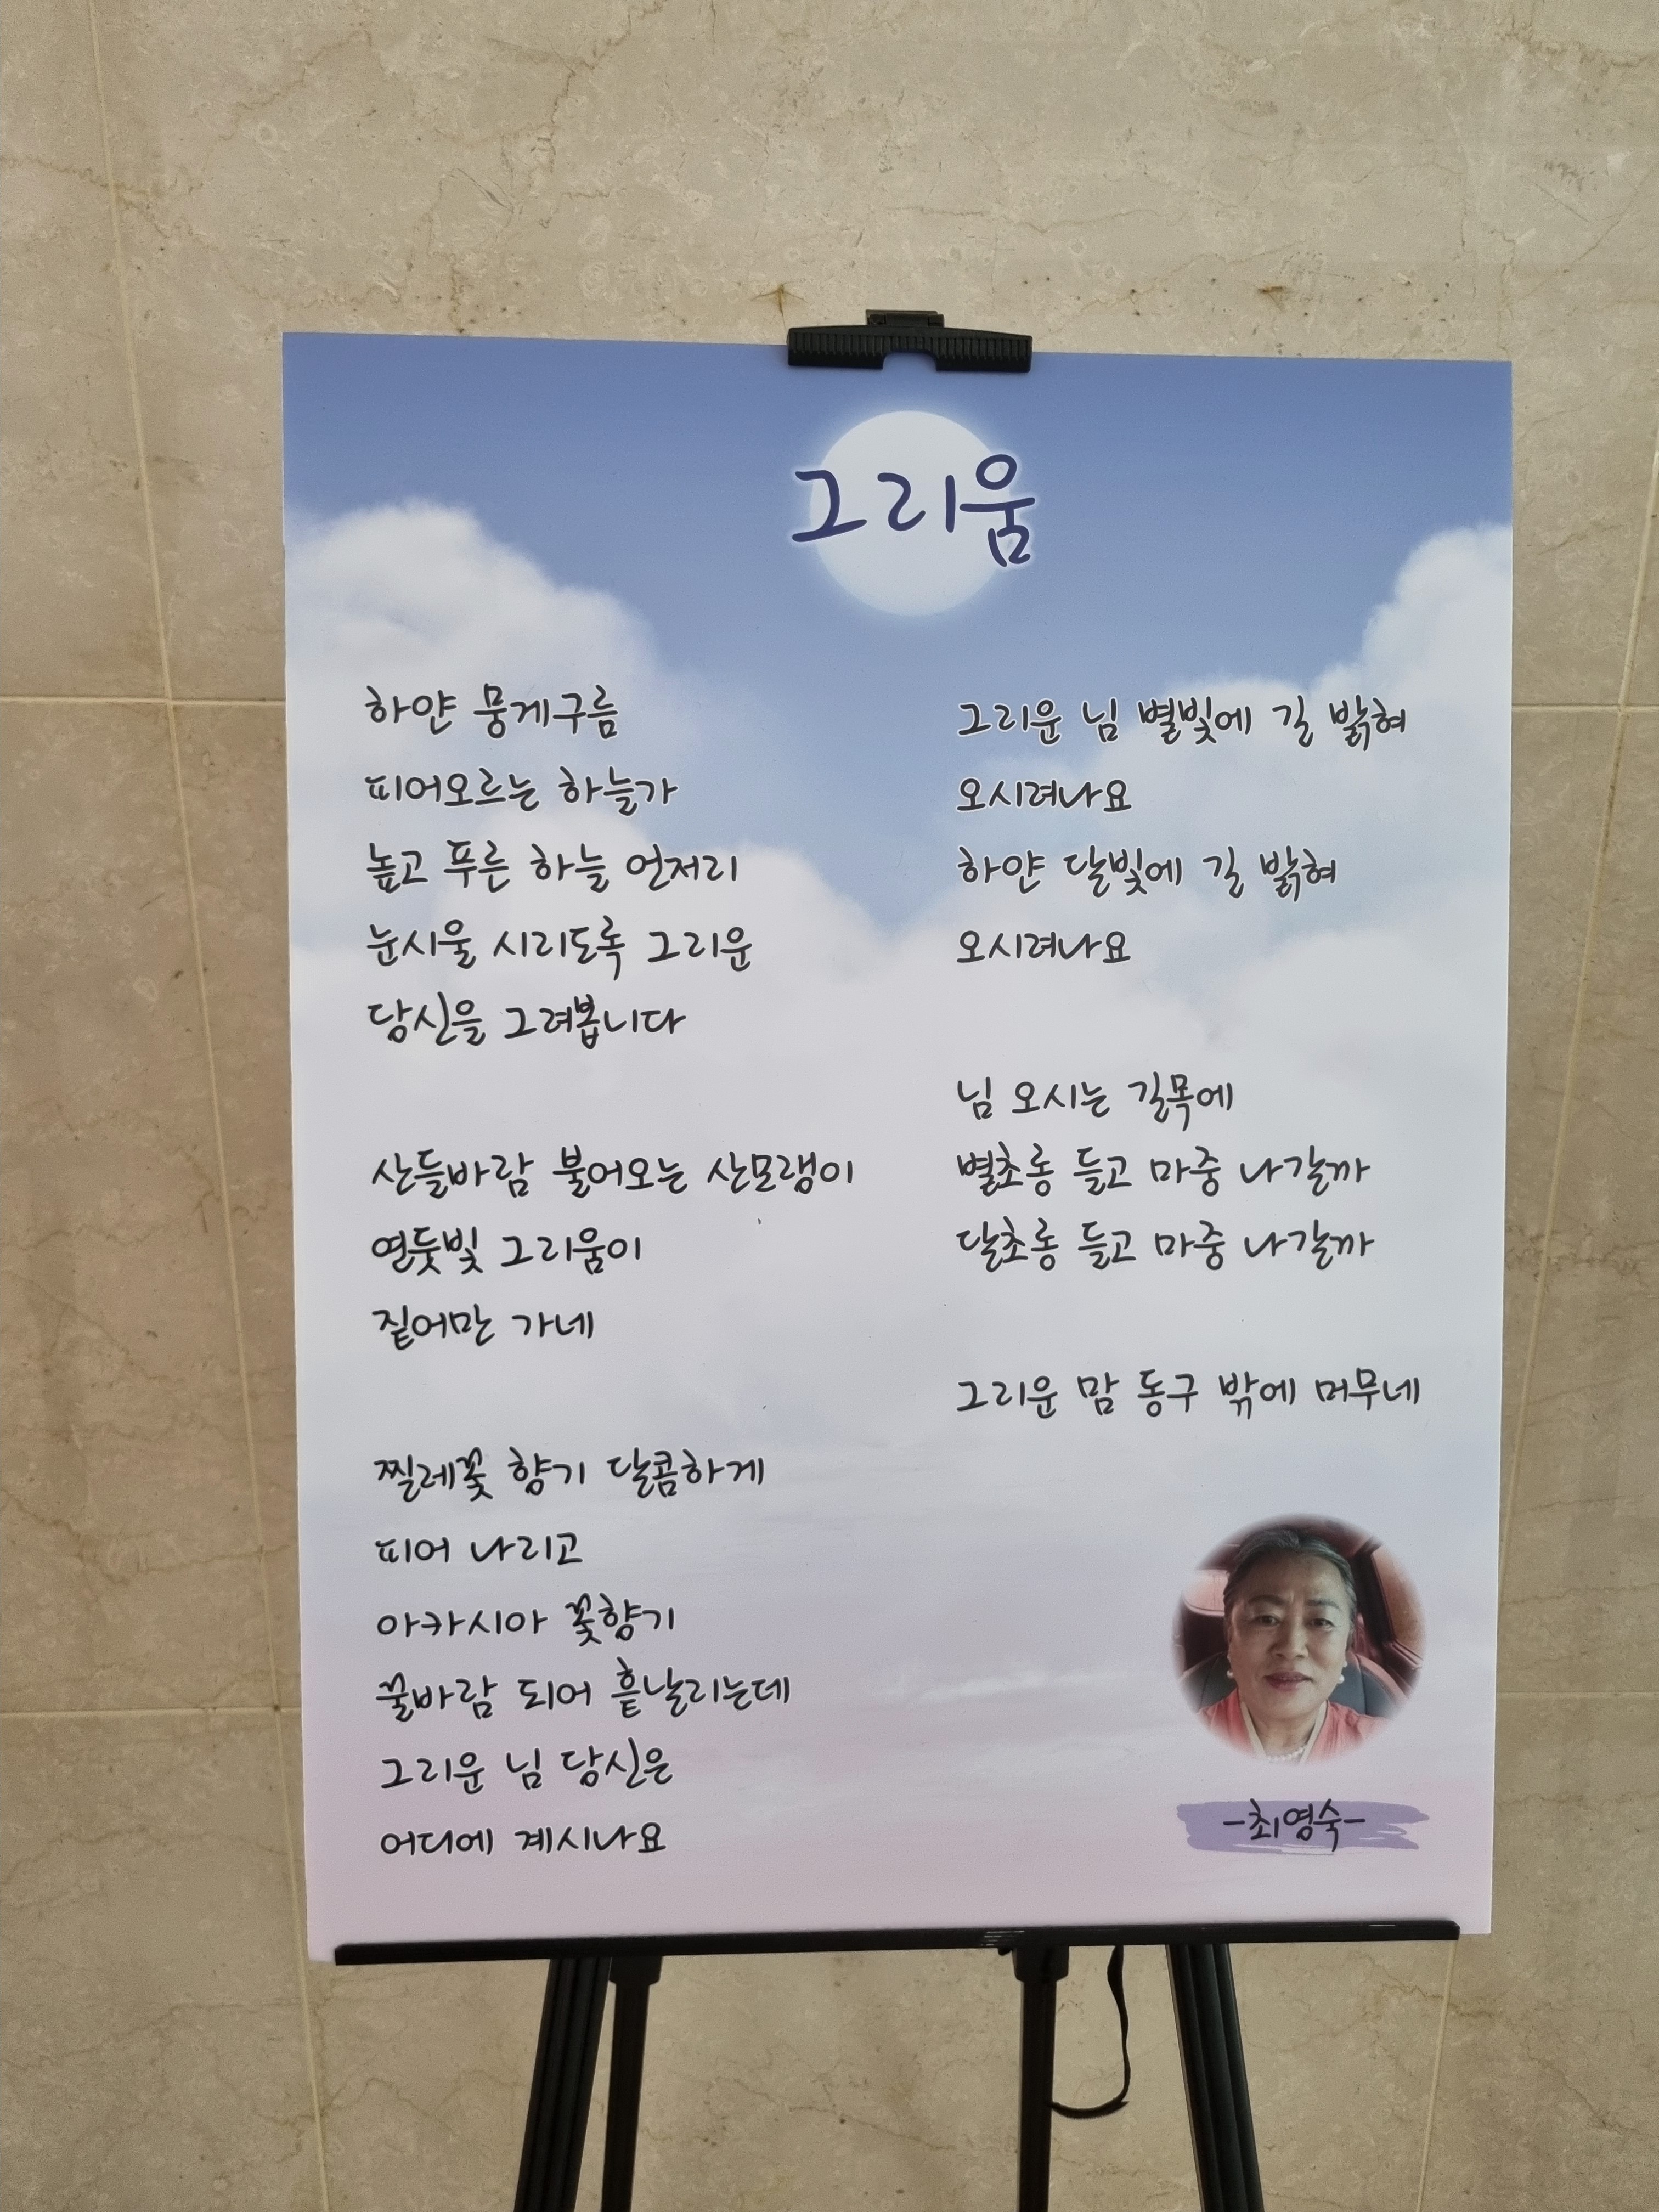 그리움
하얀 뭉게구름
피어오르는 하늘가
높고 푸른 하늘 언저리
눈시울 시리도록 그리운
당신을 그려봅니다
산들바람 불어오는 산모랭이
연둣빛 그리움이
짙어만 가네
찔레꽃 향기 달콤하게
피어 나리고
아카시아 꽃향기
꿀바람 되어 흩날리는데
그리운 님 당신은
어디에 계시나요
그리운 님 별빛에 길 밝혀
오시려나요
하얀 달빛에 길 밝혀
오시려나요
님 오시는 길목에
별초롱 들고 마중 나갈까
달초롱 들고 마중 나갈까
그리운 맘 동구 밖에 머무네
-최영숙-